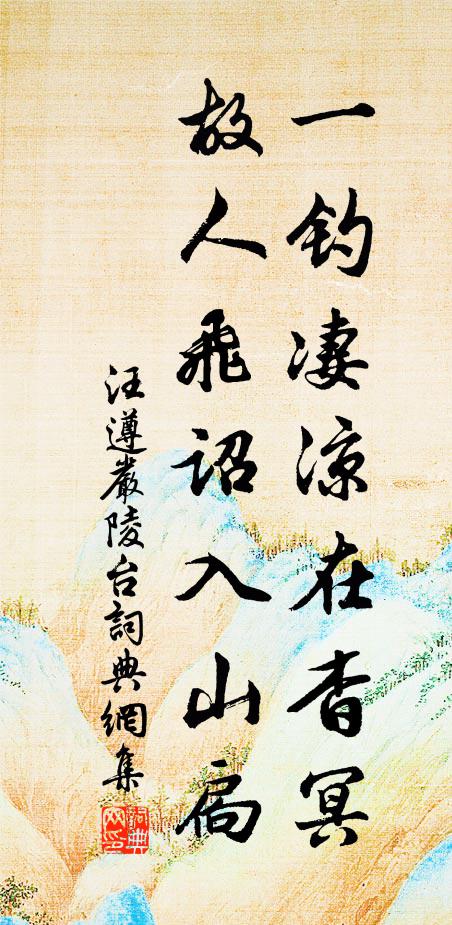 一釣凄凉在杳冥
故人飛詔入山扃
汪遵嚴陵台詞典網集
詞典网印